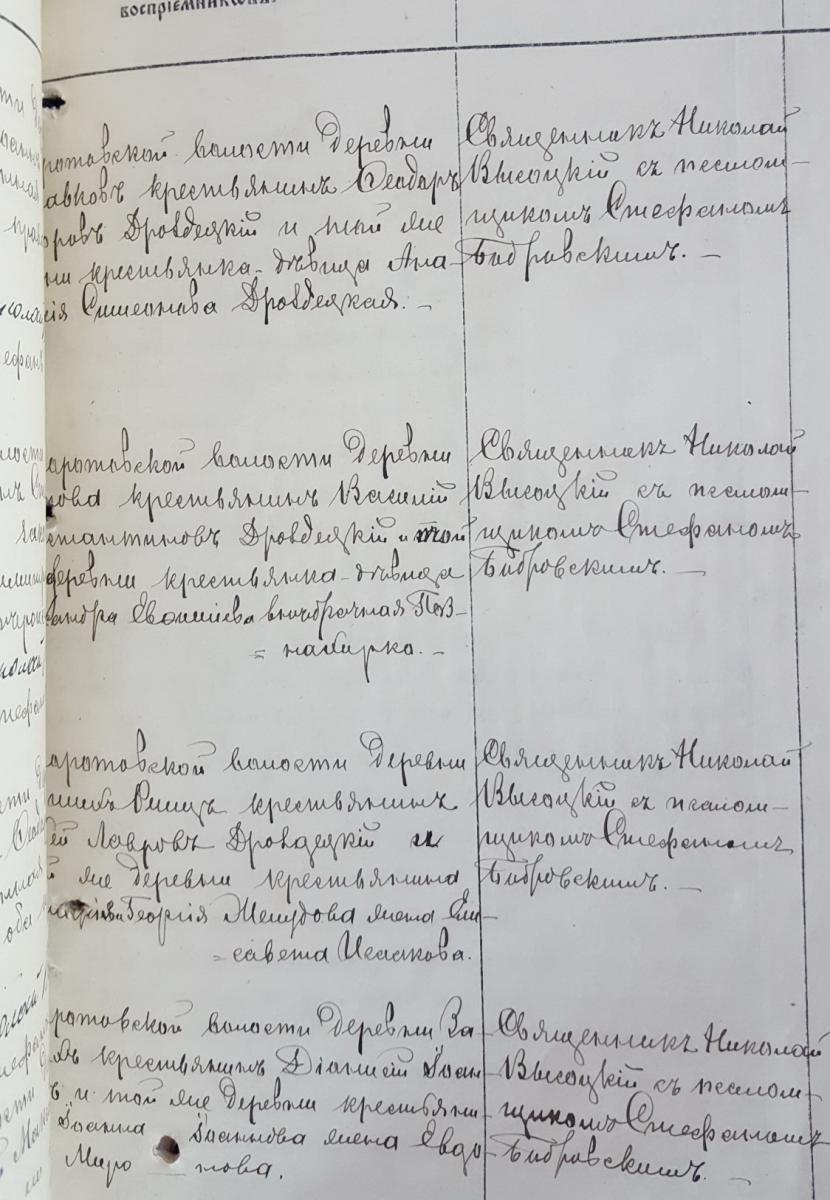 воспріемниковъ.
ротовской волости деревни
авковъ крестьянинъ Ѳеодоръ
оровъ Дроздецкій и той же
ни крестьянка-дѣвица Ана-
сія Симеонова Дроздецкая. —
Священникъ Николай
Высоцкій съ псалом-
щикомъ Стефаномъ
Бобровскимъ. —
аротовской волости деревни
крестьянинъ Василій
стантиновъ Дроздецкій и той
деревни крестьянка-дѣвица
сандра внѣбрачная Поз-
= —
Священникъ Николай
Высоцкій съ псалом-
щикомъ Стефаномъ
Бобровскимъ. —
аротовской волости деревни
крестьянинъ
ей Лавровъ Дроздецкій и
й же деревни крестьянина
Георгія жена Ели-
= савета Исаакова.
Священникъ Николай
Высоцкій съ псалом-
щикомъ Стефаномъ
Бобровскимъ. —
ротовской волости деревни За-
крестьянинъ Діонисій Іоан-
ъ и той же деревни крестьяни-
Іоанна Іоаннова жена Евдо-
Миро нова.
Священникъ Николай
Высоцкій съ псалом-
щикомъ Стефаномъ
Бобровскимъ. —